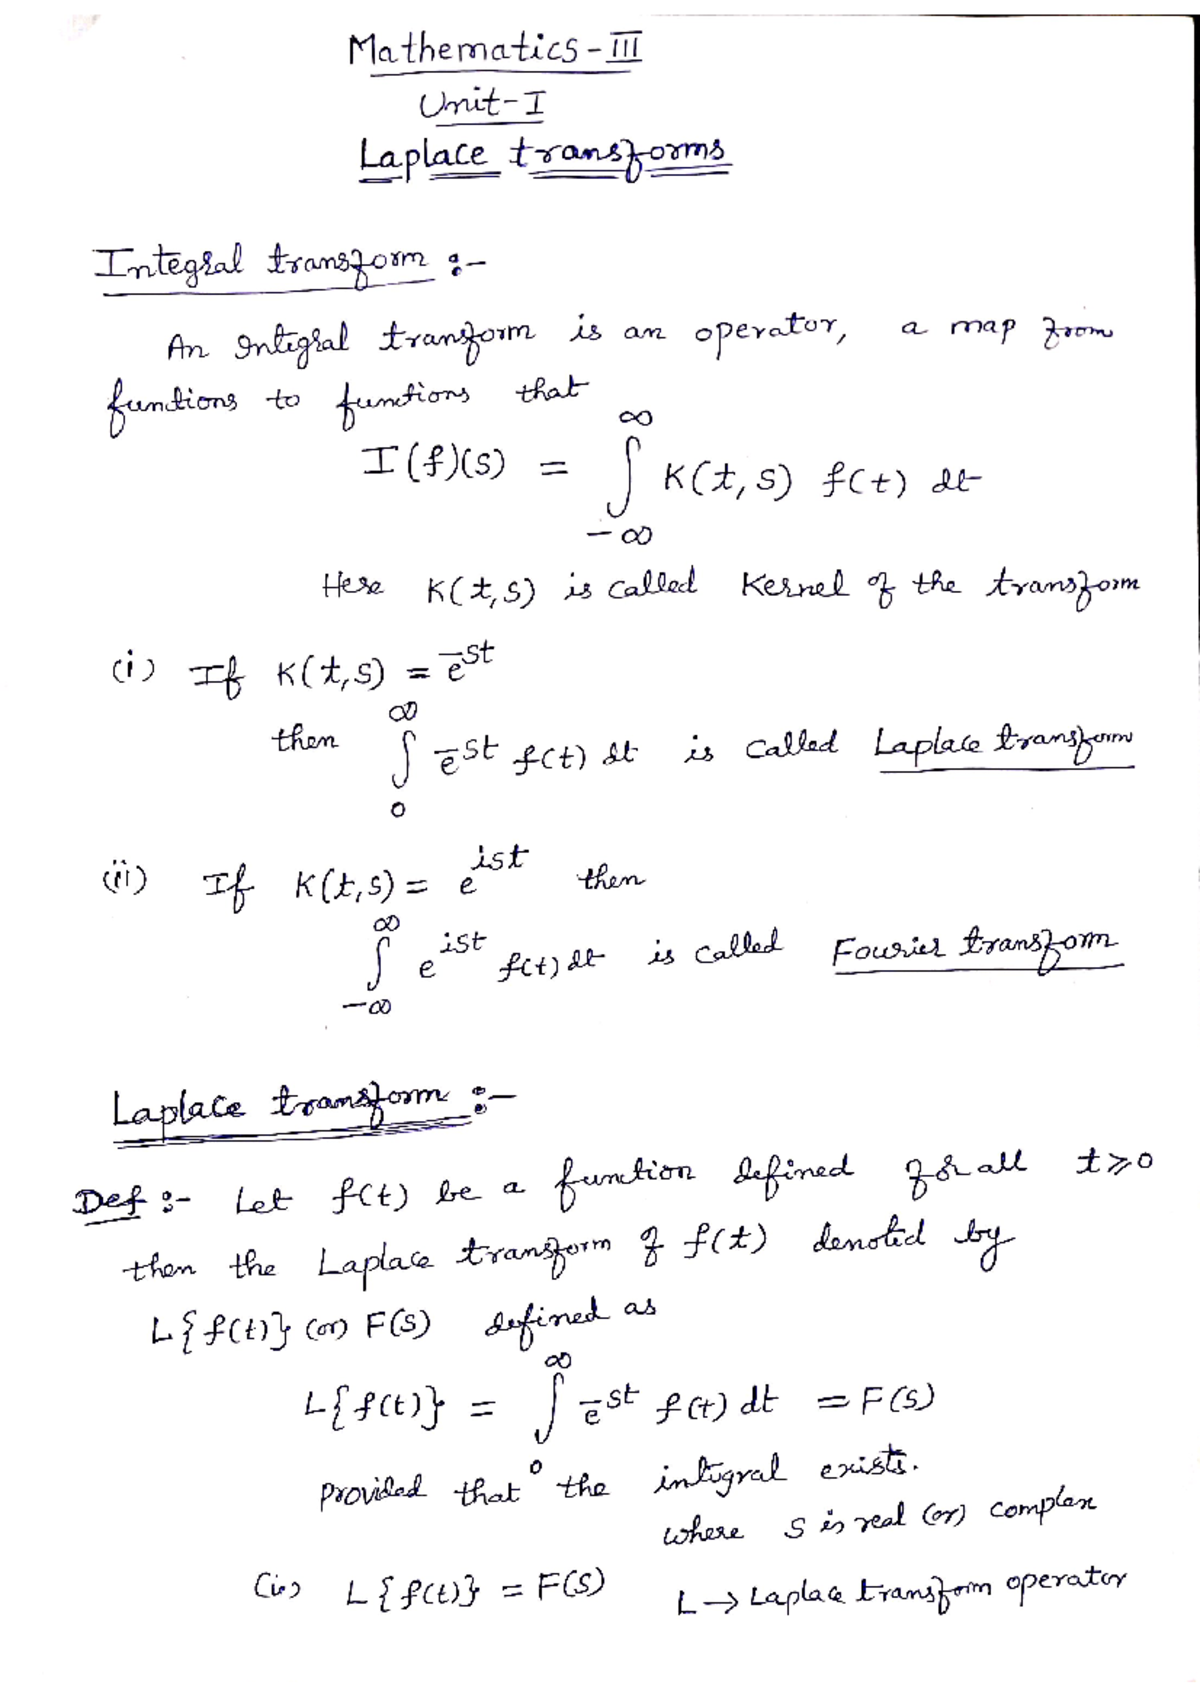 Mathematics - III
Unit - I
Laplace transforms
Integral transform :-
An Integral transform is an operator, a map from
functions to functions that
I(f)(s) = ∫_{-∞}^{∞} K(t,s) f(t) dt
Here K(t,s) is called Kernel of the transform
(i) If K(t,s) = e^{-st}
then ∫_{0}^{∞} e^{-st} f(t) dt is called Laplace transform
(ii) If K(t,s) = e^{ist} then
∫_{-∞}^{∞} e^{ist} f(t) dt is called Fourier transform
Laplace transform :-
Def :- Let f(t) be a function defined for all t ≥ 0
then the Laplace transform of f(t) denoted by
L{f(t)} (or) F(s) defined as
L{f(t)} = ∫_{0}^{∞} e^{-st} f(t) dt = F(s)
provided that the integral exists.
where s is real (or) complex
(ie) L{f(t)} = F(s) L → Laplace transform operator